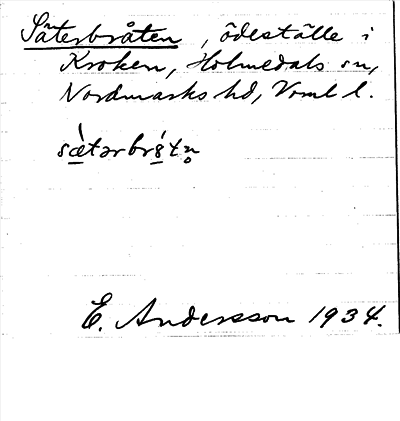 Säterbråten, ödeställe i
Kroken, Holmedals sn,
Nordmarks hd, Vrml l.
sæ̀tərbrǻtn̥
E. Andersson 1934.